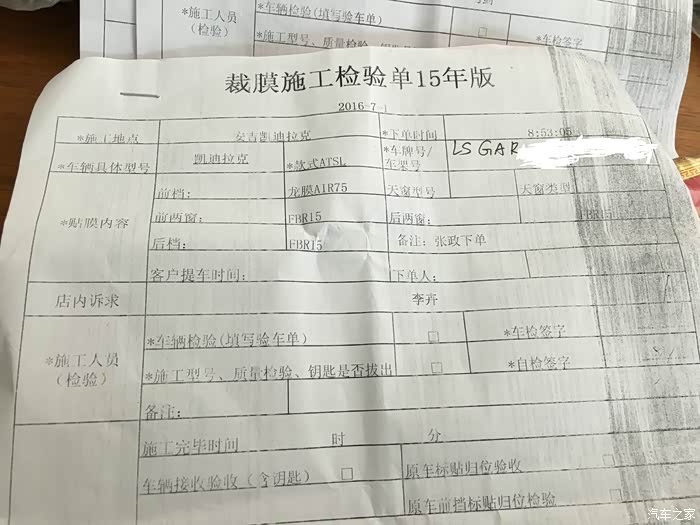 *施工人员 *车辆检验(填写验车单) □
(检验) *施工型号、质量检验、 □ *车检签字
裁膜施工检验单15年版
2016-7-1
*施工地点 安吉凯迪拉克 *下单时间 8:53:05
*车辆具体型号 凯迪拉克 *款式ATSL *车牌号/车架号 LSGAR
*贴膜内容 前档: 龙膜AIR75 天窗型号 天窗类型
前两窗: FBR15 后两窗: FBR15
后档: FBR15 备注: 张政下单
客户提车时间: 下单人:
店内诉求 李卉
*施工人员(检验) *车辆检验(填写验车单) □ *车检签字
*施工型号、质量检验、钥匙是否拔出 □ *自检签字
备注:
施工完毕时间 时 分
车辆接收验收(含钥匙) □ 原车标贴归位验收 □
原车前挡标贴归位检验 □
汽车之家